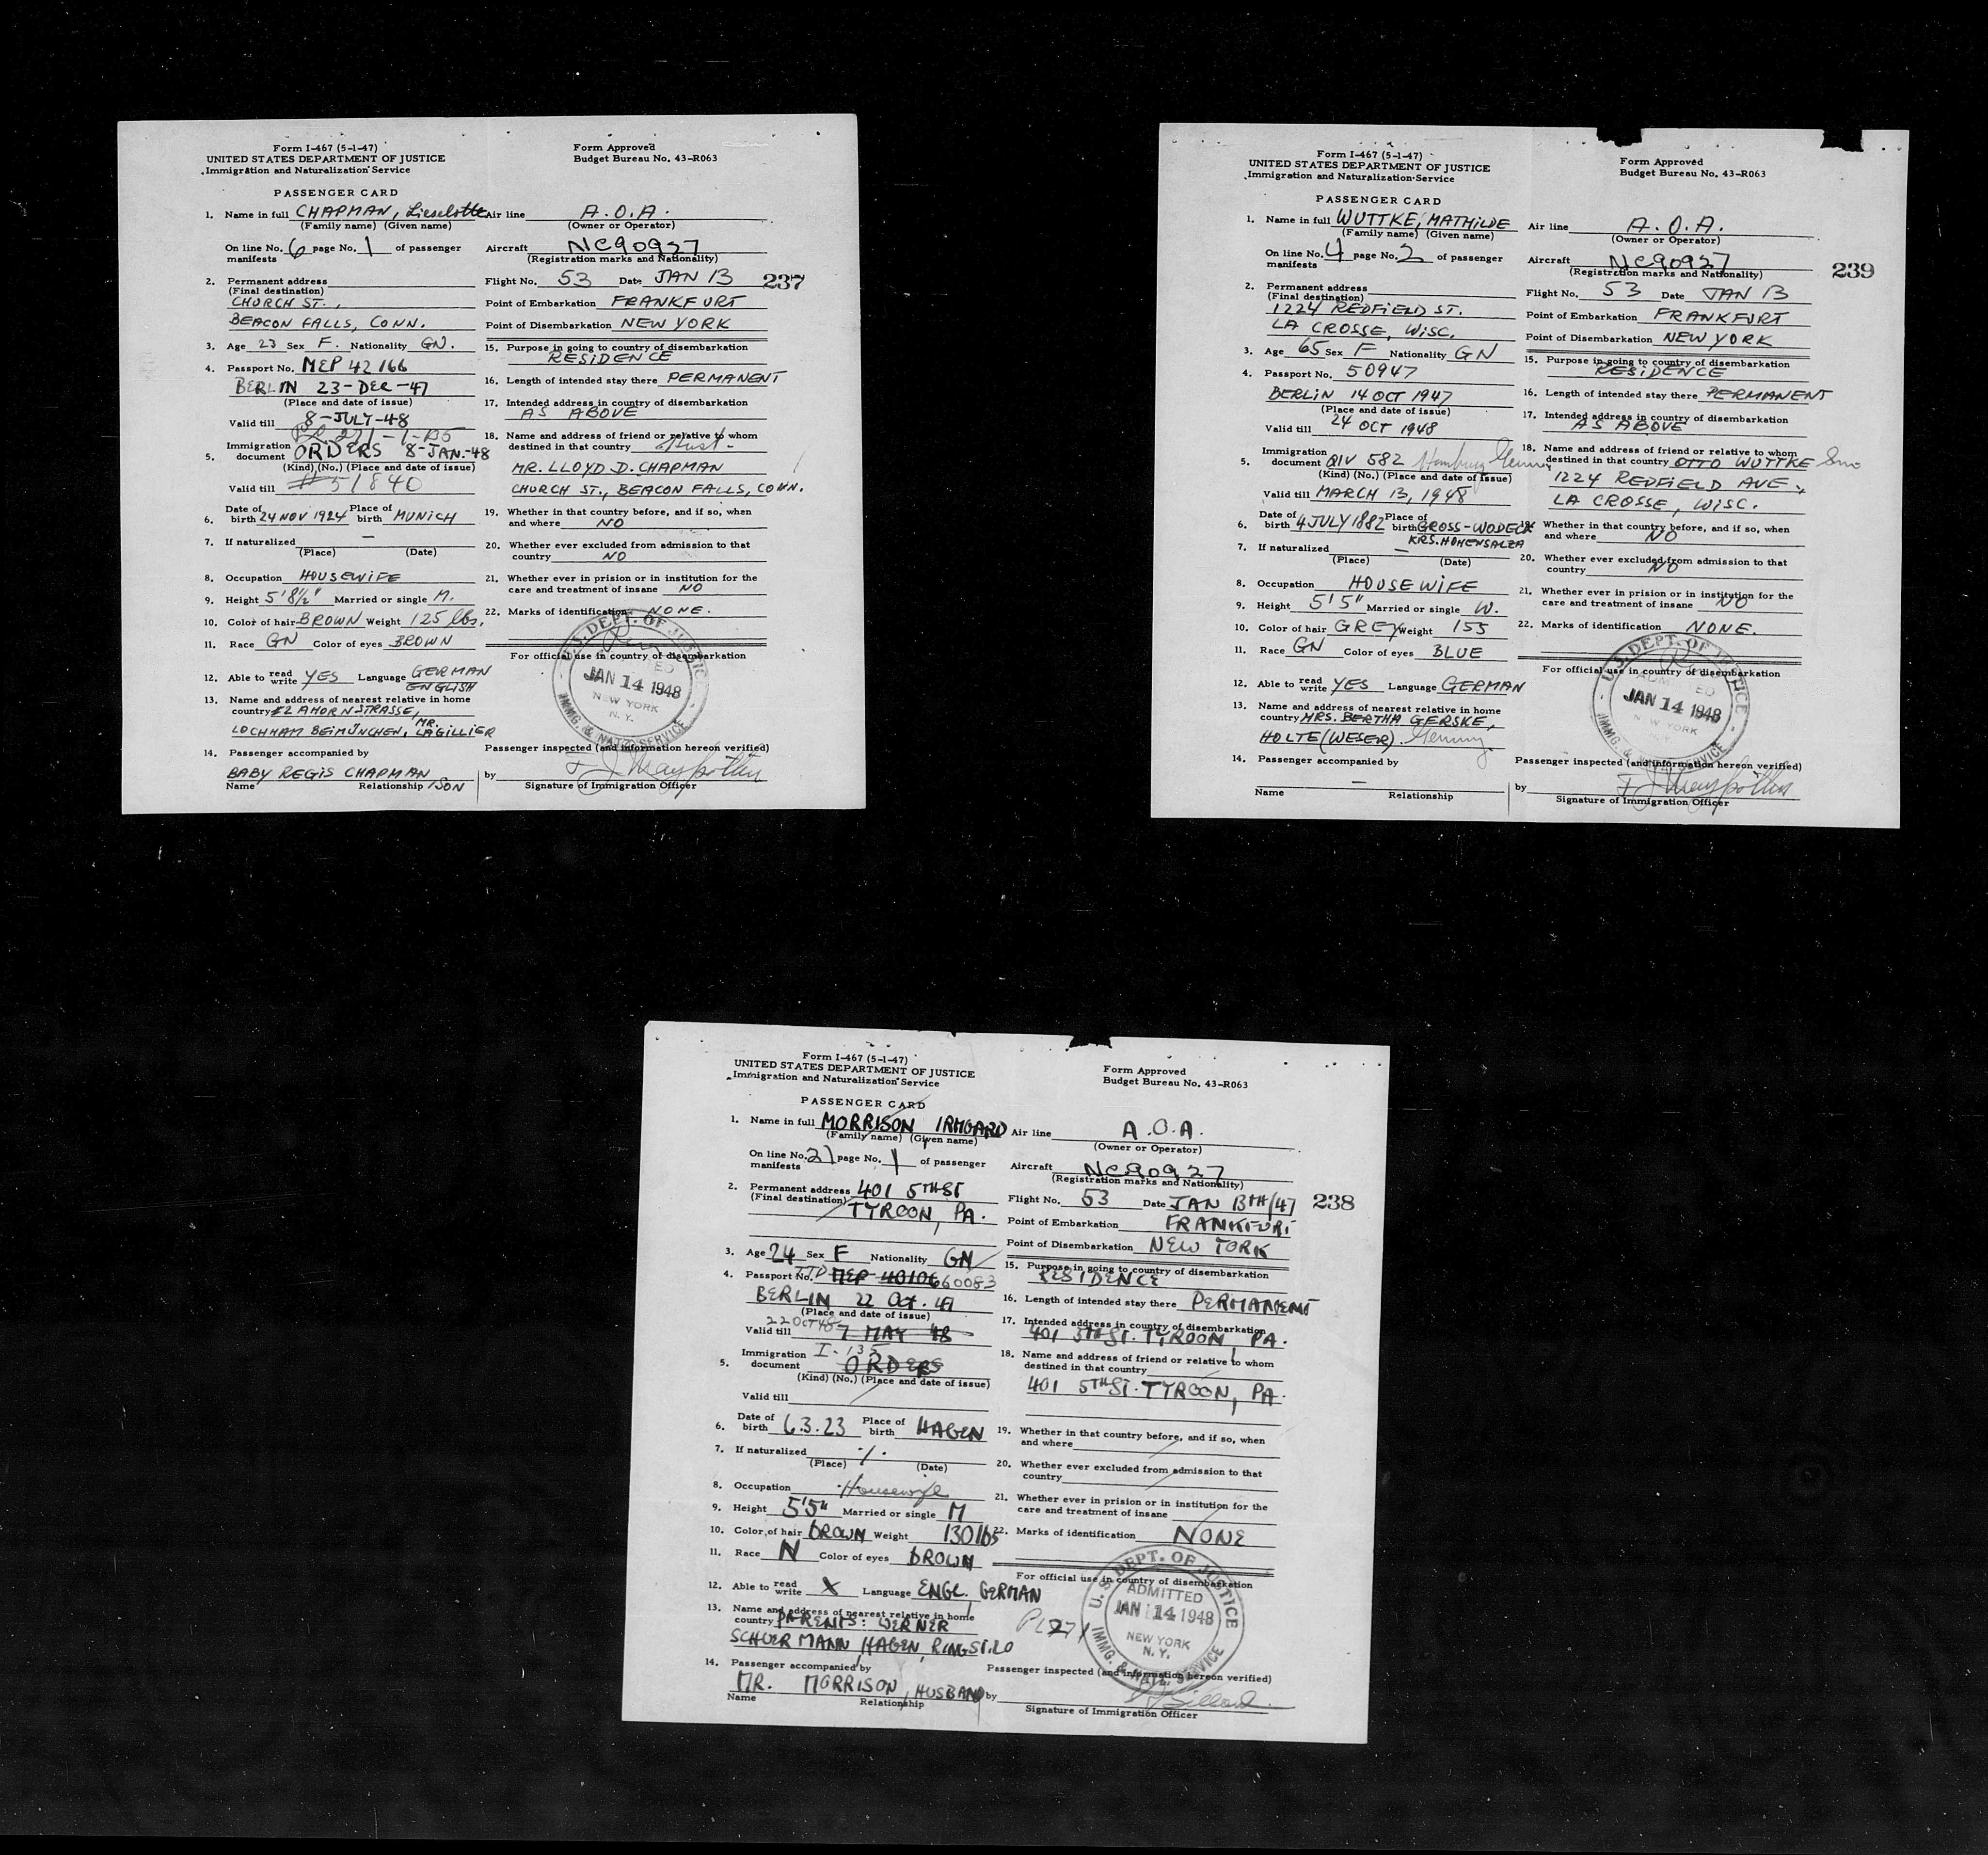 Form I-467 (5-1-47)
UNITED STATES DEPARTMENT OF JUSTICE
Immigration and Naturalization Service
Form Approved
Budget Bureau No. 43-R063
PASSENGER CARD
1. Name in full CHAPMAN, Lieselotte
(Family name) (Given name)
On line No. 6 page No. 1 of passenger
manifests
2. Permanent address
(Final destination)
CHURCH ST.,
BEACON FALLS, CONN.
3. Age 23 Sex F. Nationality GN.
4. Passport No. MEP 42166
BERLIN 23-DEC-47
(Place and date of issue)
Valid till 8-JULY-48
Immigration
5. document ORDERS 8-JAN.-48
(Kind) (No.) (Place and date of issue)
Valid till #51840
6. Date of birth 24 NOV 1924 Place of birth MUNICH
7. If naturalized —
(Place) (Date)
8. Occupation HOUSEWIFE
9. Height 5'8½" Married or single M.
10. Color of hair BROWN Weight 125 lbs.
11. Race GN Color of eyes BROWN
12. Able to read write YES Language GERMAN
ENGLISH
13. Name and address of nearest relative in home
country #2 AHORNSTRASSE,
LOCHHAM BEI MÜNCHEN, MR. LAGILLIER
14. Passenger accompanied by
BABY REGIS CHAPMAN / SON
Name Relationship
Air line A.O.A.
(Owner or Operator)
Aircraft NC90927
(Registration marks and Nationality)
Flight No. 53 Date JAN 13 237
Point of Embarkation FRANKFURT
Point of Disembarkation NEW YORK
15. Purpose in going to country of disembarkation
RESIDENCE
16. Length of intended stay there PERMANENT
17. Intended address in country of disembarkation
AS ABOVE
18. Name and address of friend or relative to whom
destined in that country
MR. LLOYD D. CHAPMAN
CHURCH ST., BEACON FALLS, CONN.
19. Whether in that country before, and if so, when
and where NO
20. Whether ever excluded from admission to that
country NO
21. Whether ever in prision or in institution for the
care and treatment of insane NO
22. Marks of identification NONE.
For official use in country of disembarkation
U.S. DEPT. OF JUSTICE
ADMITTED
JAN 14 1948
NEW YORK
N.Y.
IMMG. & NATZ. SERVICE
Passenger inspected (and information hereon verified)
by
Signature of Immigration Officer
Form I-467 (5-1-47)
UNITED STATES DEPARTMENT OF JUSTICE
Immigration and Naturalization Service
Form Approved
Budget Bureau No. 43-R063
PASSENGER CARD
1. Name in full WUTTKE, MATHILDE
(Family name) (Given name)
On line No. 4 page No. 2 of passenger
manifests
2. Permanent address
(Final destination)
1224 REDFIELD ST.
LA CROSSE, WISC.
3. Age 65 Sex F Nationality GN
4. Passport No. 50947
BERLIN 14 OCT 1947
(Place and date of issue)
Valid till 24 OCT 1948
Immigration
5. document QIV 582 Hamburg Germany
(Kind) (No.) (Place and date of issue)
Valid till MARCH 13, 1948
6. Date of birth 4 JULY 1882 Place of birth GROSS-WODECK
KRS. HOHENSALZA
7. If naturalized —
(Place) (Date)
8. Occupation HOUSEWIFE
9. Height 5'5" Married or single W.
10. Color of hair GREY Weight 155
11. Race GN Color of eyes BLUE
12. Able to read write YES Language GERMAN
13. Name and address of nearest relative in home
country MRS. BERTHA GERSKE,
HOLTE (WESER). Germany.
14. Passenger accompanied by
—
Name Relationship
Air line A.O.A.
(Owner or Operator)
Aircraft NC90927
(Registration marks and Nationality)
Flight No. 53 Date JAN 13 239
Point of Embarkation FRANKFURT
Point of Disembarkation NEW YORK
15. Purpose in going to country of disembarkation
RESIDENCE
16. Length of intended stay there PERMANENT
17. Intended address in country of disembarkation
AS ABOVE
18. Name and address of friend or relative to whom
destined in that country OTTO WUTTKE Son
1224 REDFIELD AVE.,
LA CROSSE, WISC.
19. Whether in that country before, and if so, when
and where NO
20. Whether ever excluded from admission to that
country NO
21. Whether ever in prision or in institution for the
care and treatment of insane NO
22. Marks of identification NONE.
For official use in country of disembarkation
U.S. DEPT. OF JUSTICE
ADMITTED
JAN 14 1948
NEW YORK
N.Y.
IMMG. & NATZ. SERVICE
Passenger inspected (and information hereon verified)
by
Signature of Immigration Officer
Form I-467 (5-1-47)
UNITED STATES DEPARTMENT OF JUSTICE
Immigration and Naturalization Service
Form Approved
Budget Bureau No. 43-R063
PASSENGER CARD
1. Name in full MORRISON IRMGARD
(Family name) (Given name)
On line No. 21 page No. 1 of passenger
manifests
2. Permanent address 401 5TH ST
(Final destination) TYROON, PA.
3. Age 24 Sex F Nationality GN
4. Passport No. TTD MEP 40106 60083
BERLIN 22 Oct. 47
(Place and date of issue)
22 OCT 48
Valid till 7 MAY 48
Immigration I-135
5. document ORDERS
(Kind) (No.) (Place and date of issue)
Valid till
6. Date of birth 6.3.23 Place of birth HAGEN
7. If naturalized ./.
(Place) (Date)
8. Occupation Housewife
9. Height 5'5" Married or single M
10. Color of hair BROWN Weight 130 lbs
11. Race N Color of eyes BROWN
12. Able to read write X Language ENGL. GERMAN
13. Name and address of nearest relative in home
country PARENTS: WERNER
SCHUERMANN, HAGEN, RINGST. 20
14. Passenger accompanied by
MR. MORRISON, HUSBAND
Name Relationship
Air line A.O.A.
(Owner or Operator)
Aircraft NC90927
(Registration marks and Nationality)
Flight No. 53 Date JAN 13TH/47 238
Point of Embarkation FRANKFURT
Point of Disembarkation NEW YORK
15. Purpose in going to country of disembarkation
RESIDENCE
16. Length of intended stay there PERMANENT
17. Intended address in country of disembarkation
401 5TH ST. TYROON, PA.
18. Name and address of friend or relative to whom
destined in that country
401 5TH ST. TYROON, PA.
19. Whether in that country before, and if so, when
and where
20. Whether ever excluded from admission to that
country
21. Whether ever in prision or in institution for the
care and treatment of insane
22. Marks of identification NONE
For official use in country of disembarkation
U.S. DEPT. OF JUSTICE
ADMITTED
JAN 14 1948
NEW YORK
N.Y.
IMMG. & NATZ. SERVICE
PL 271
Passenger inspected (and information hereon verified)
by
Signature of Immigration Officer